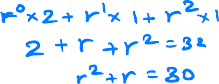 r⁰×2 + r¹× 1 + r²×1
2 + r + r² = 32
r² + r = 30